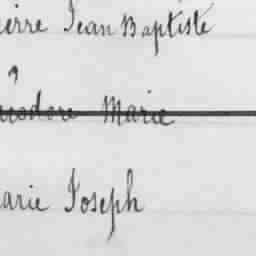 ierre Jean Baptiste
éodore Marie
arie Joseph